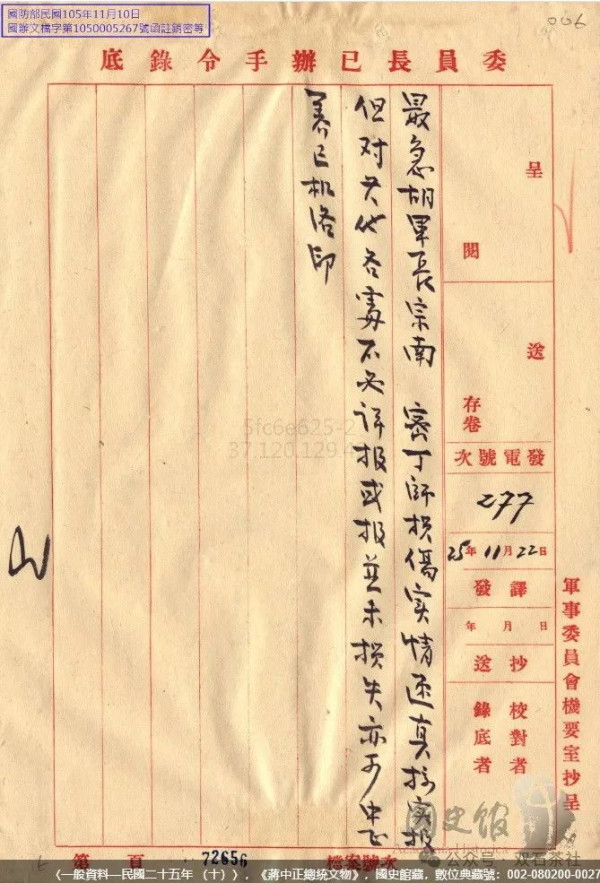 國防部民國105年11月10日
國辦文檔字第1050005267號函註銷密等
006
委員長已辦手令錄底
軍事委員會機要室抄呈
呈閱
送存卷
發電號次
277
25年11月22日
譯發
年 月 日
抄送
校對者
錄底者
最急胡軍長宗南 密丁師损傷实情 实报
但对其他各處不必详报或报並未损失亦可中正
養巳机洛印
5fc6e625-2
37.120.129.4
檔案號次
72656
第 頁
國史館
公众号·双石茶社
〈一般資料—民國二十五年（十）〉,《蔣中正總統文物》, 國史館藏, 數位典藏號：002-080200-0027